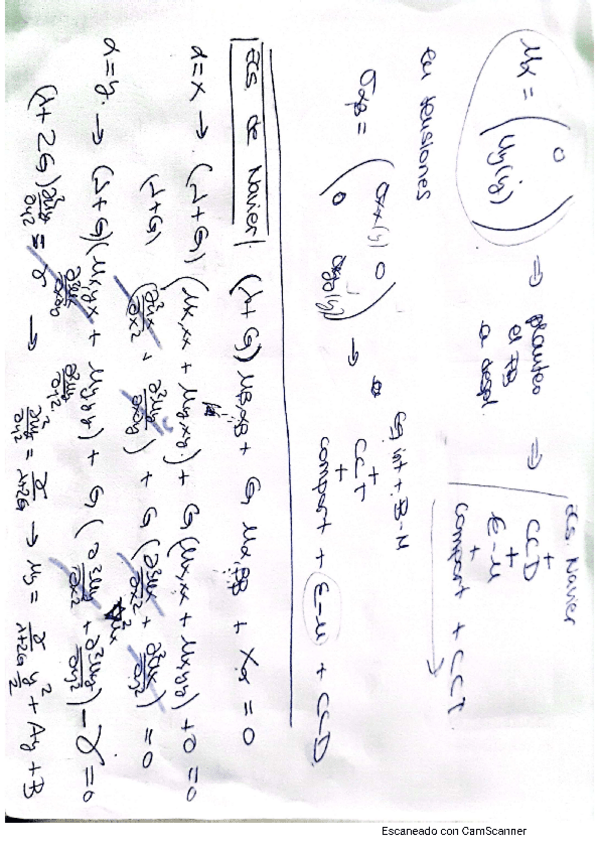 μα = ( 0
μy(y) ) ⇒ planteo el PB a despl. ⇒
Ecs. Navier
+
CCD
+
ε-μ
+
comport + CCT
en tensiones
σαβ = ( σxx(y) 0
0 σyy(y) ) → 
Eq int + B-M
+
CCT
+
comport + ε-μ + CCD
Ecs de Navier
(λ+G) μβ,αβ + G μα,ββ + Xα = 0
α=x → (λ+G) (μx,xx + μy,xy) + G (μx,xx + μx,yy) + 0 = 0
(λ+G) (∂²μx/∂x² + ∂²μy/∂x∂y) + G (∂²μx/∂x² + ∂²μx/∂y²) = 0
α=y → (λ+G) (μx,yx + μy,yy) + G (∂²μy/∂x² + ∂²μy/∂y²) - γ = 0
∂²μx/∂x∂y ∂²μy/∂y²
(λ+2G) ∂²μy/∂y² = γ → ∂²μy/∂y² = γ/λ+2G → μy = γ/λ+2G y²/2 + Ay + B
Escaneado con CamScanner